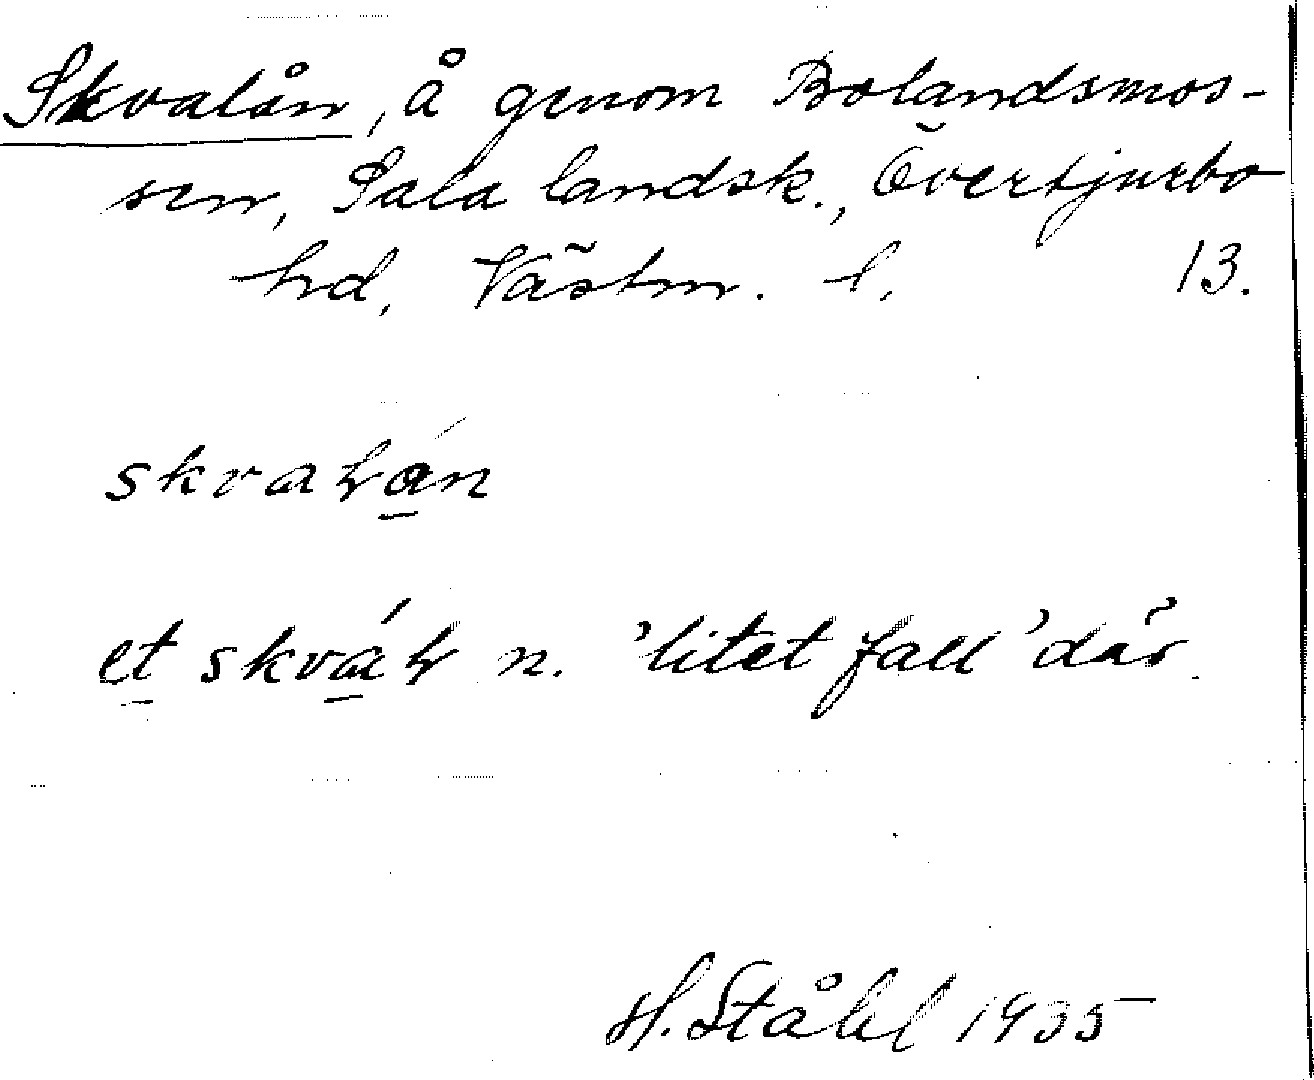 Skvalån, å genom Bolandsmos-
sen, Sala landsk., Övertjurbo
hd, Västm. l. 13.
skvaƚån
et skváƚ n. 'litet fall' där.
H. Ståhl 1935